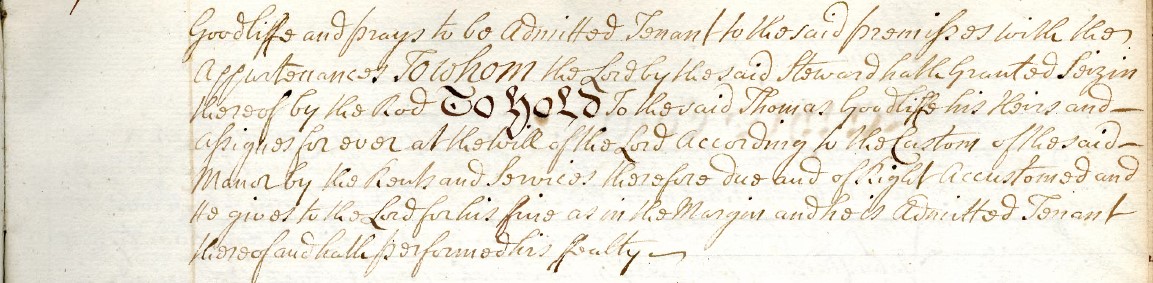 Goodliffe and prays to be Admitted Tenant to the said premisses with the
Appurtenances To whom the Lord by the said Steward hath Granted Seizin
thereof by the Rod To Hold To the said Thomas Goodliffe his Heirs and
Assignes for ever at the Will of the Lord According to the Custom of the said
Manor by the Rents and Services therefore due and of Right Accustomed and
He gives to the Lord for his fine as in the Margin and he is Admitted Tenant
thereof and hath performed his ffealty